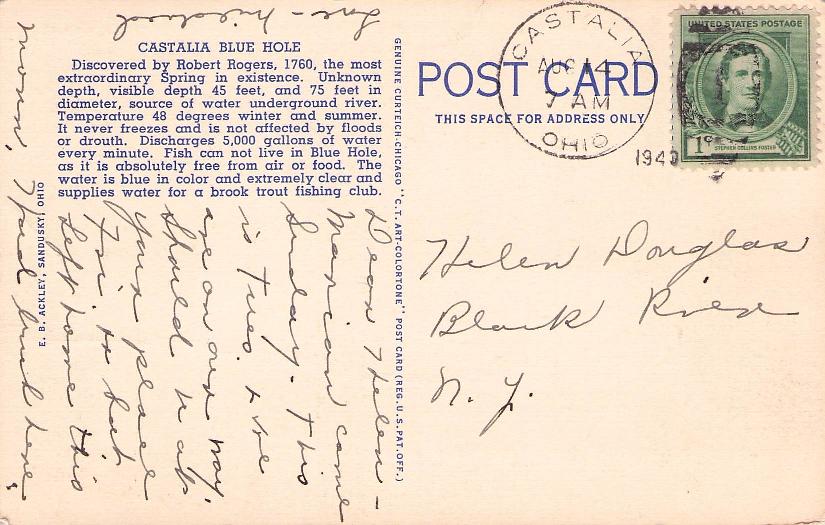 CASTALIA BLUE HOLE
Discovered by Robert Rogers, 1760, the most
extraordinary Spring in existence. Unknown
depth, visible depth 45 feet, and 75 feet in
diameter, source of water underground river.
Temperature 48 degrees winter and summer.
It never freezes and is not affected by floods
or drouth. Discharges 5,000 gallons of water
every minute. Fish can not live in Blue Hole,
as it is absolutely free from air or food. The
water is blue in color and extremely clear and
supplies water for a brook trout fishing club.
Dear Helen -
Marian came
Sunday. This
is Tues. & we
are on our way.
Should be at
your place
Fri. or Sat.
Left home this
morn. Had lunch here.
Love - Mildred
E. B. ACKLEY, SANDUSKY, OHIO
GENUINE CURTEICH-CHICAGO "C.T. ART-COLORTONE" POST CARD (REG. U.S. PAT. OFF.)
POST CARD
THIS SPACE FOR ADDRESS ONLY
CASTALIA
AUG 14
7 AM
OHIO
1940
UNITED STATES POSTAGE
1¢
STEPHEN COLLINS FOSTER
Helen Douglas
Black River
N. Y.